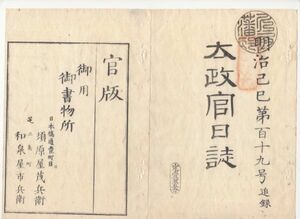 明治己巳第百十九号追録
太政官日誌
官版
御用
御書物所
日本橋通壹町目
須原屋茂兵衛
芝三島町
和泉屋市兵衛